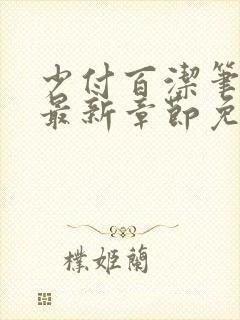 少付百潔筆
最新章節免
樸姬蘭